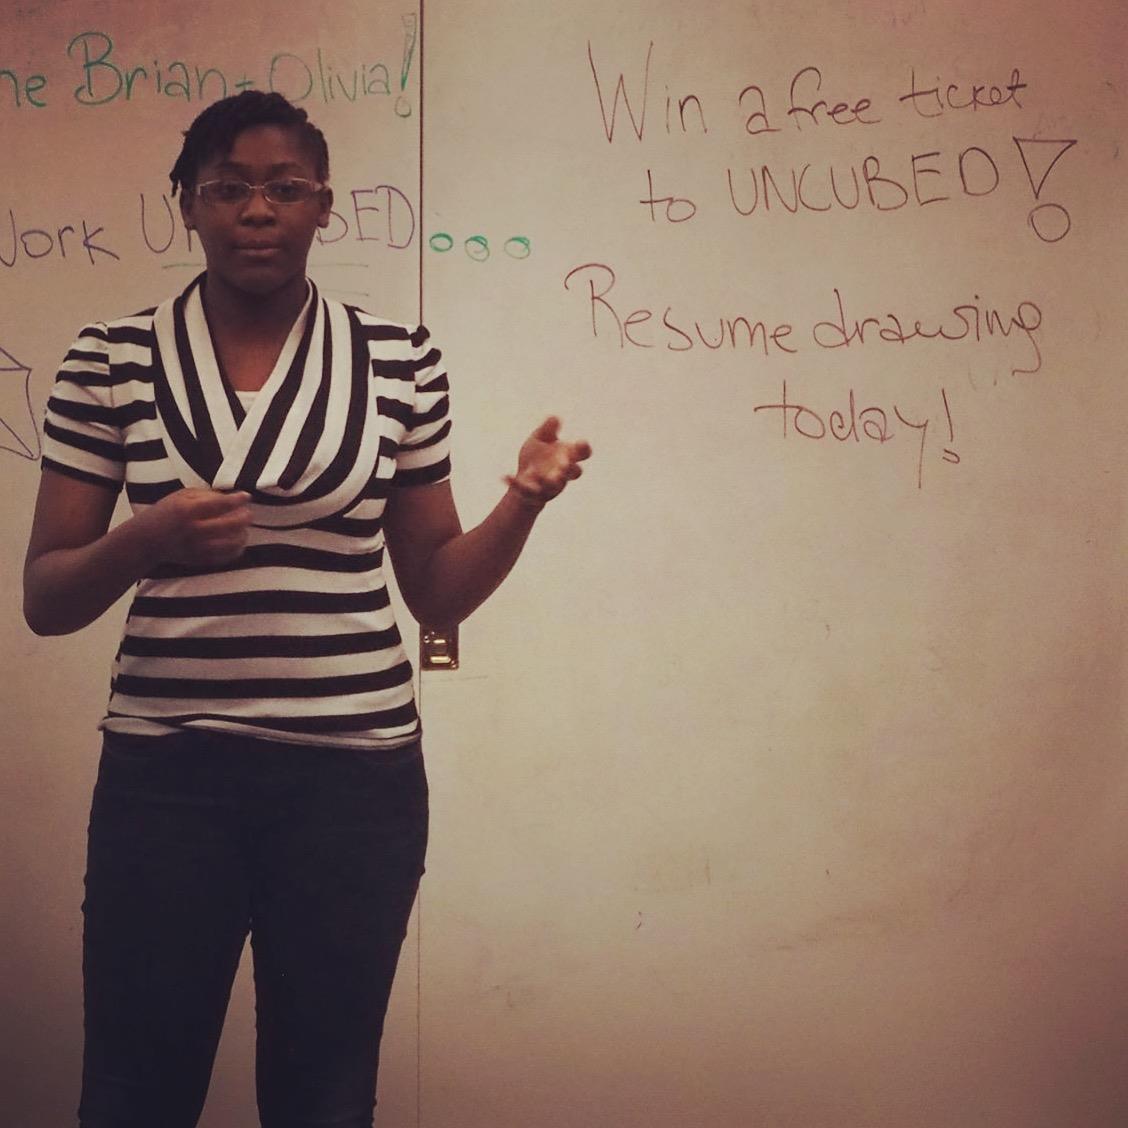 Brian + Olivia!
Work
Win a free ticket
to UNCUBED!
Resume drawing
today!